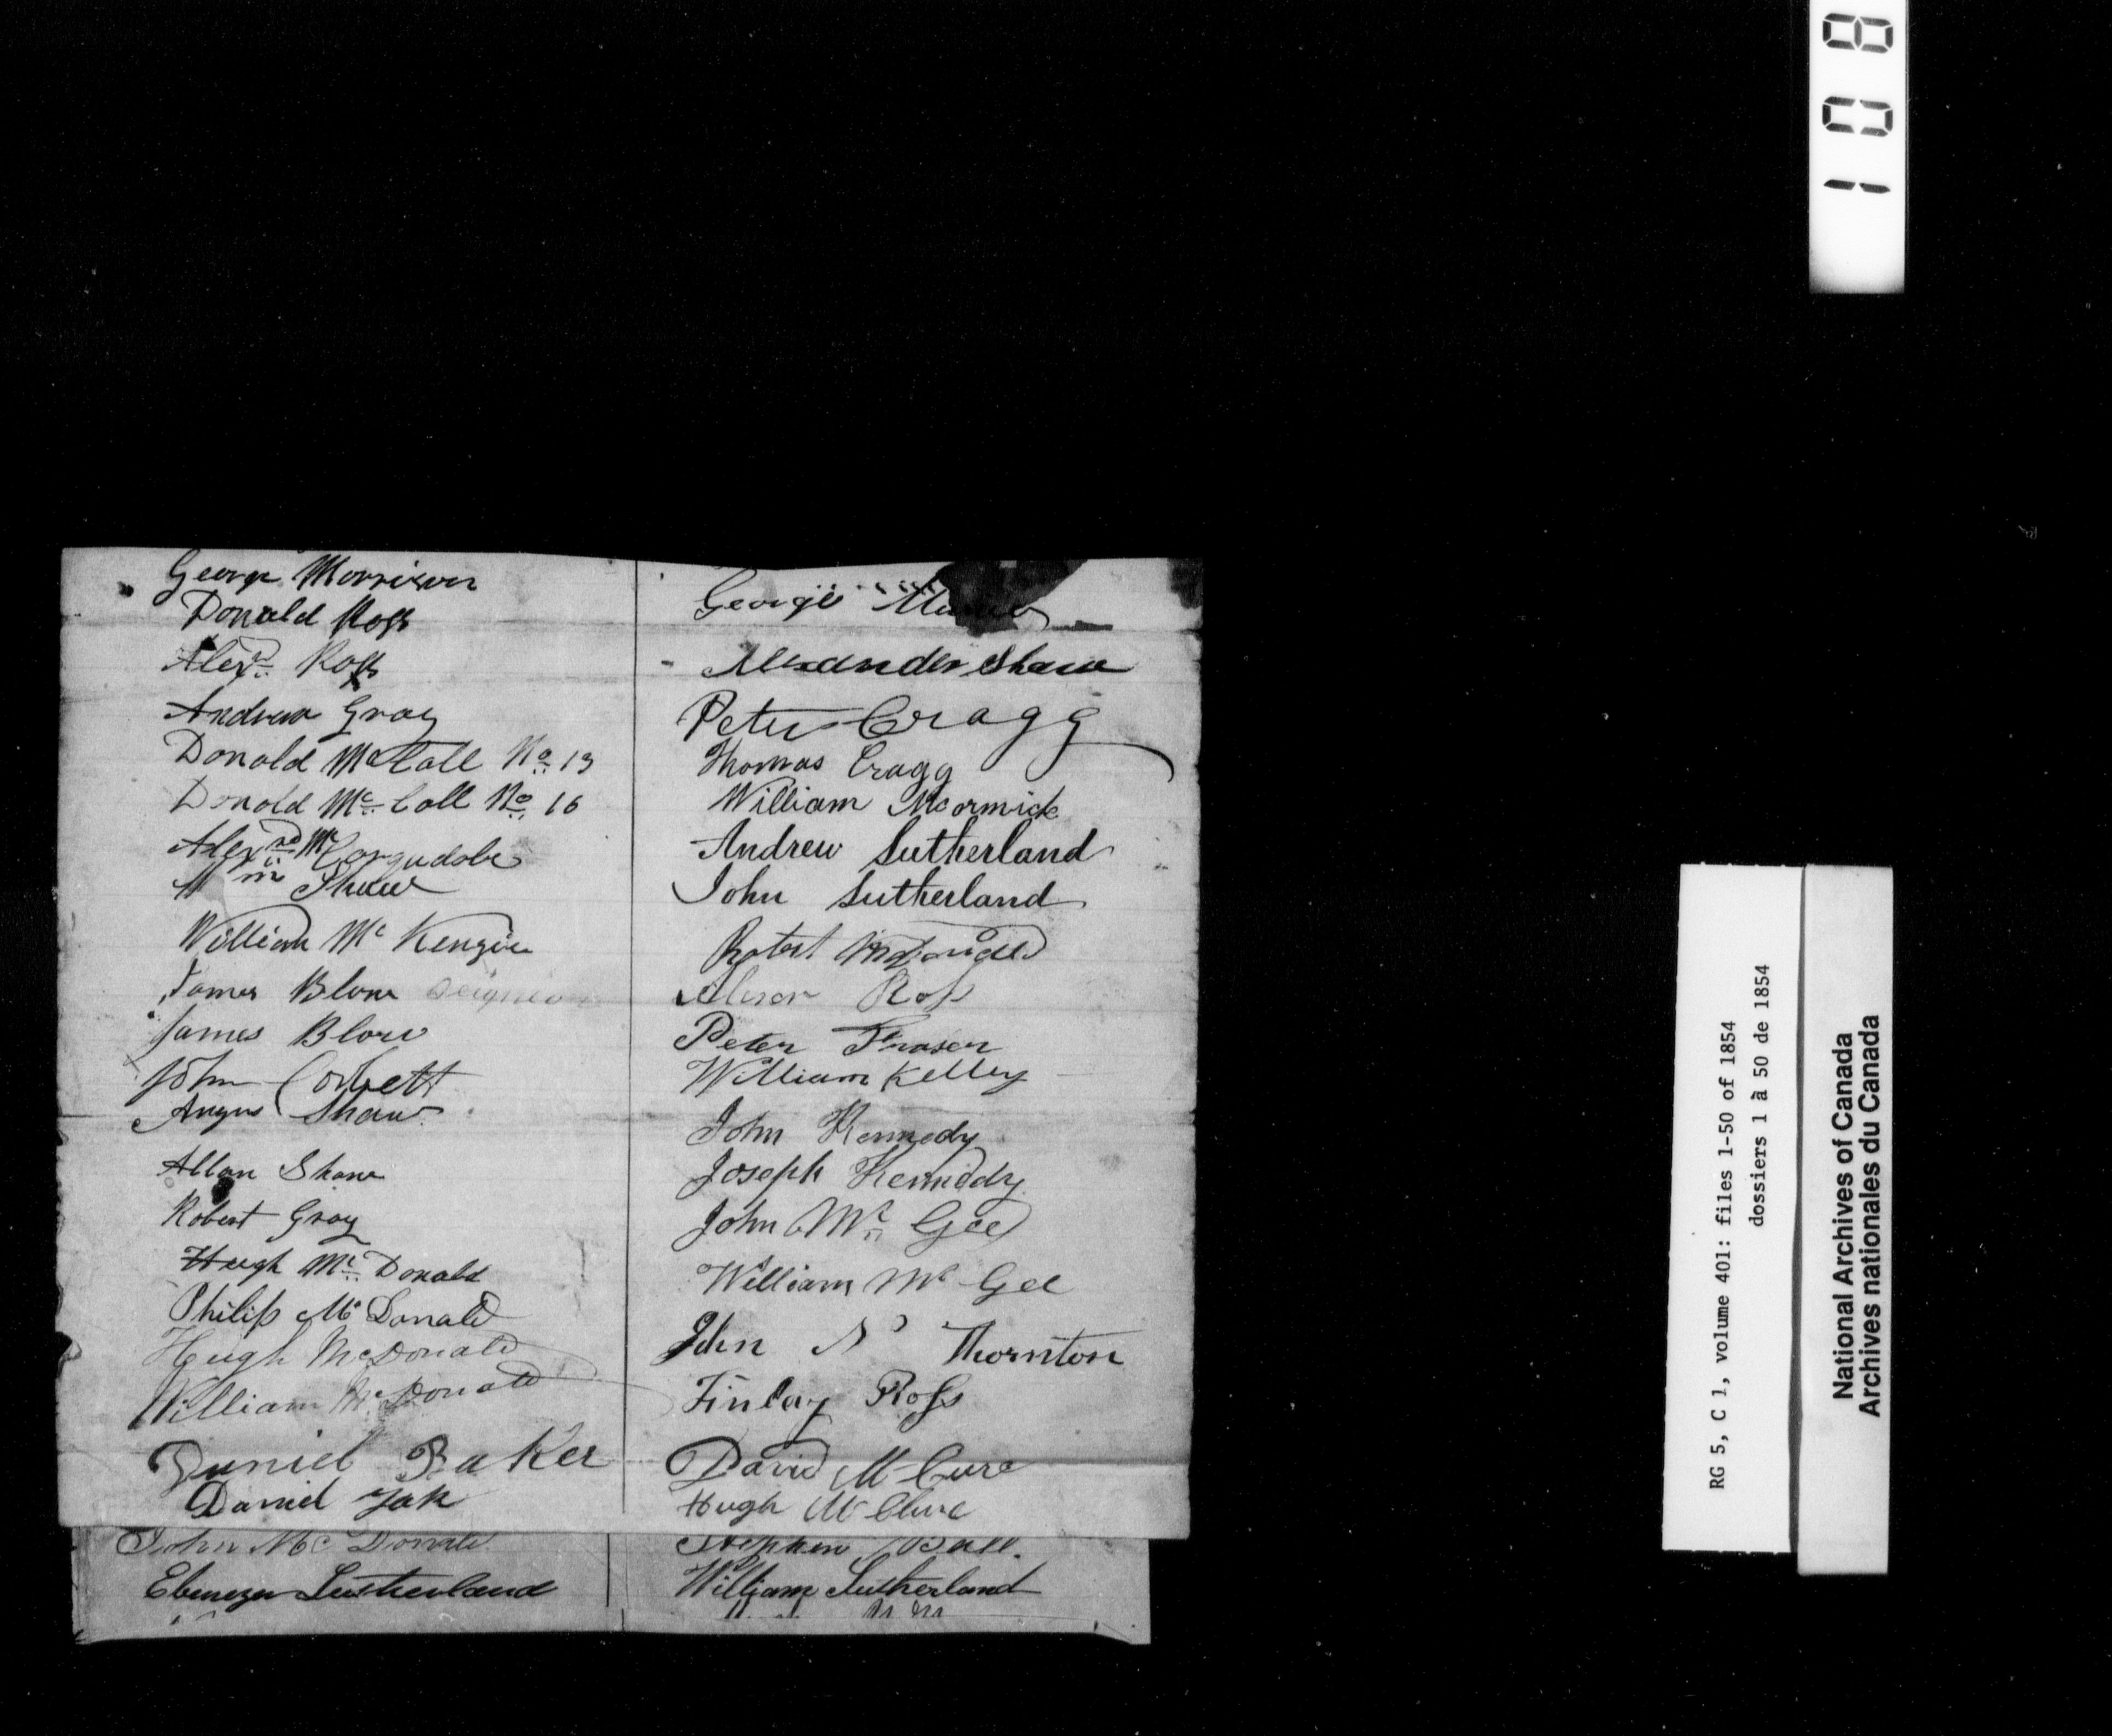 George Morrison
Donald Ross
Alexr. Ross
Andrew Gray
Donald McCall No. 13
Donald Mc Call No. 16
Alexr. Mc
Wm Shaw
William Mc Kenzie
James Blow
James Blow
John Corbett
Angus Shaw
Allan Shaw
Robert Gray
Hugh Mc Donald
Philip Mc Donald
Hugh McDonald
William McDonald
Daniel Baker
Daniel
John Mc Donald
Ebenezer Sutherland
George
Alexander Shaw
Peter Cragg
Thomas Cragg
William Mcormick
Andrew Sutherland
John Sutherland
Robert
Ross
Peter Fraser
William Kelley
John Kennedy
Joseph Kennedy
John Mc Gee
William Mc Gee
John Thornton
Finlay Ross
David McCure
Hugh McClure
Stephen Ball
William Sutherland
108
RG 5, C 1, volume 401: files 1-50 of 1854
dossiers 1 à 50 de 1854
National Archives of Canada
Archives nationales du Canada